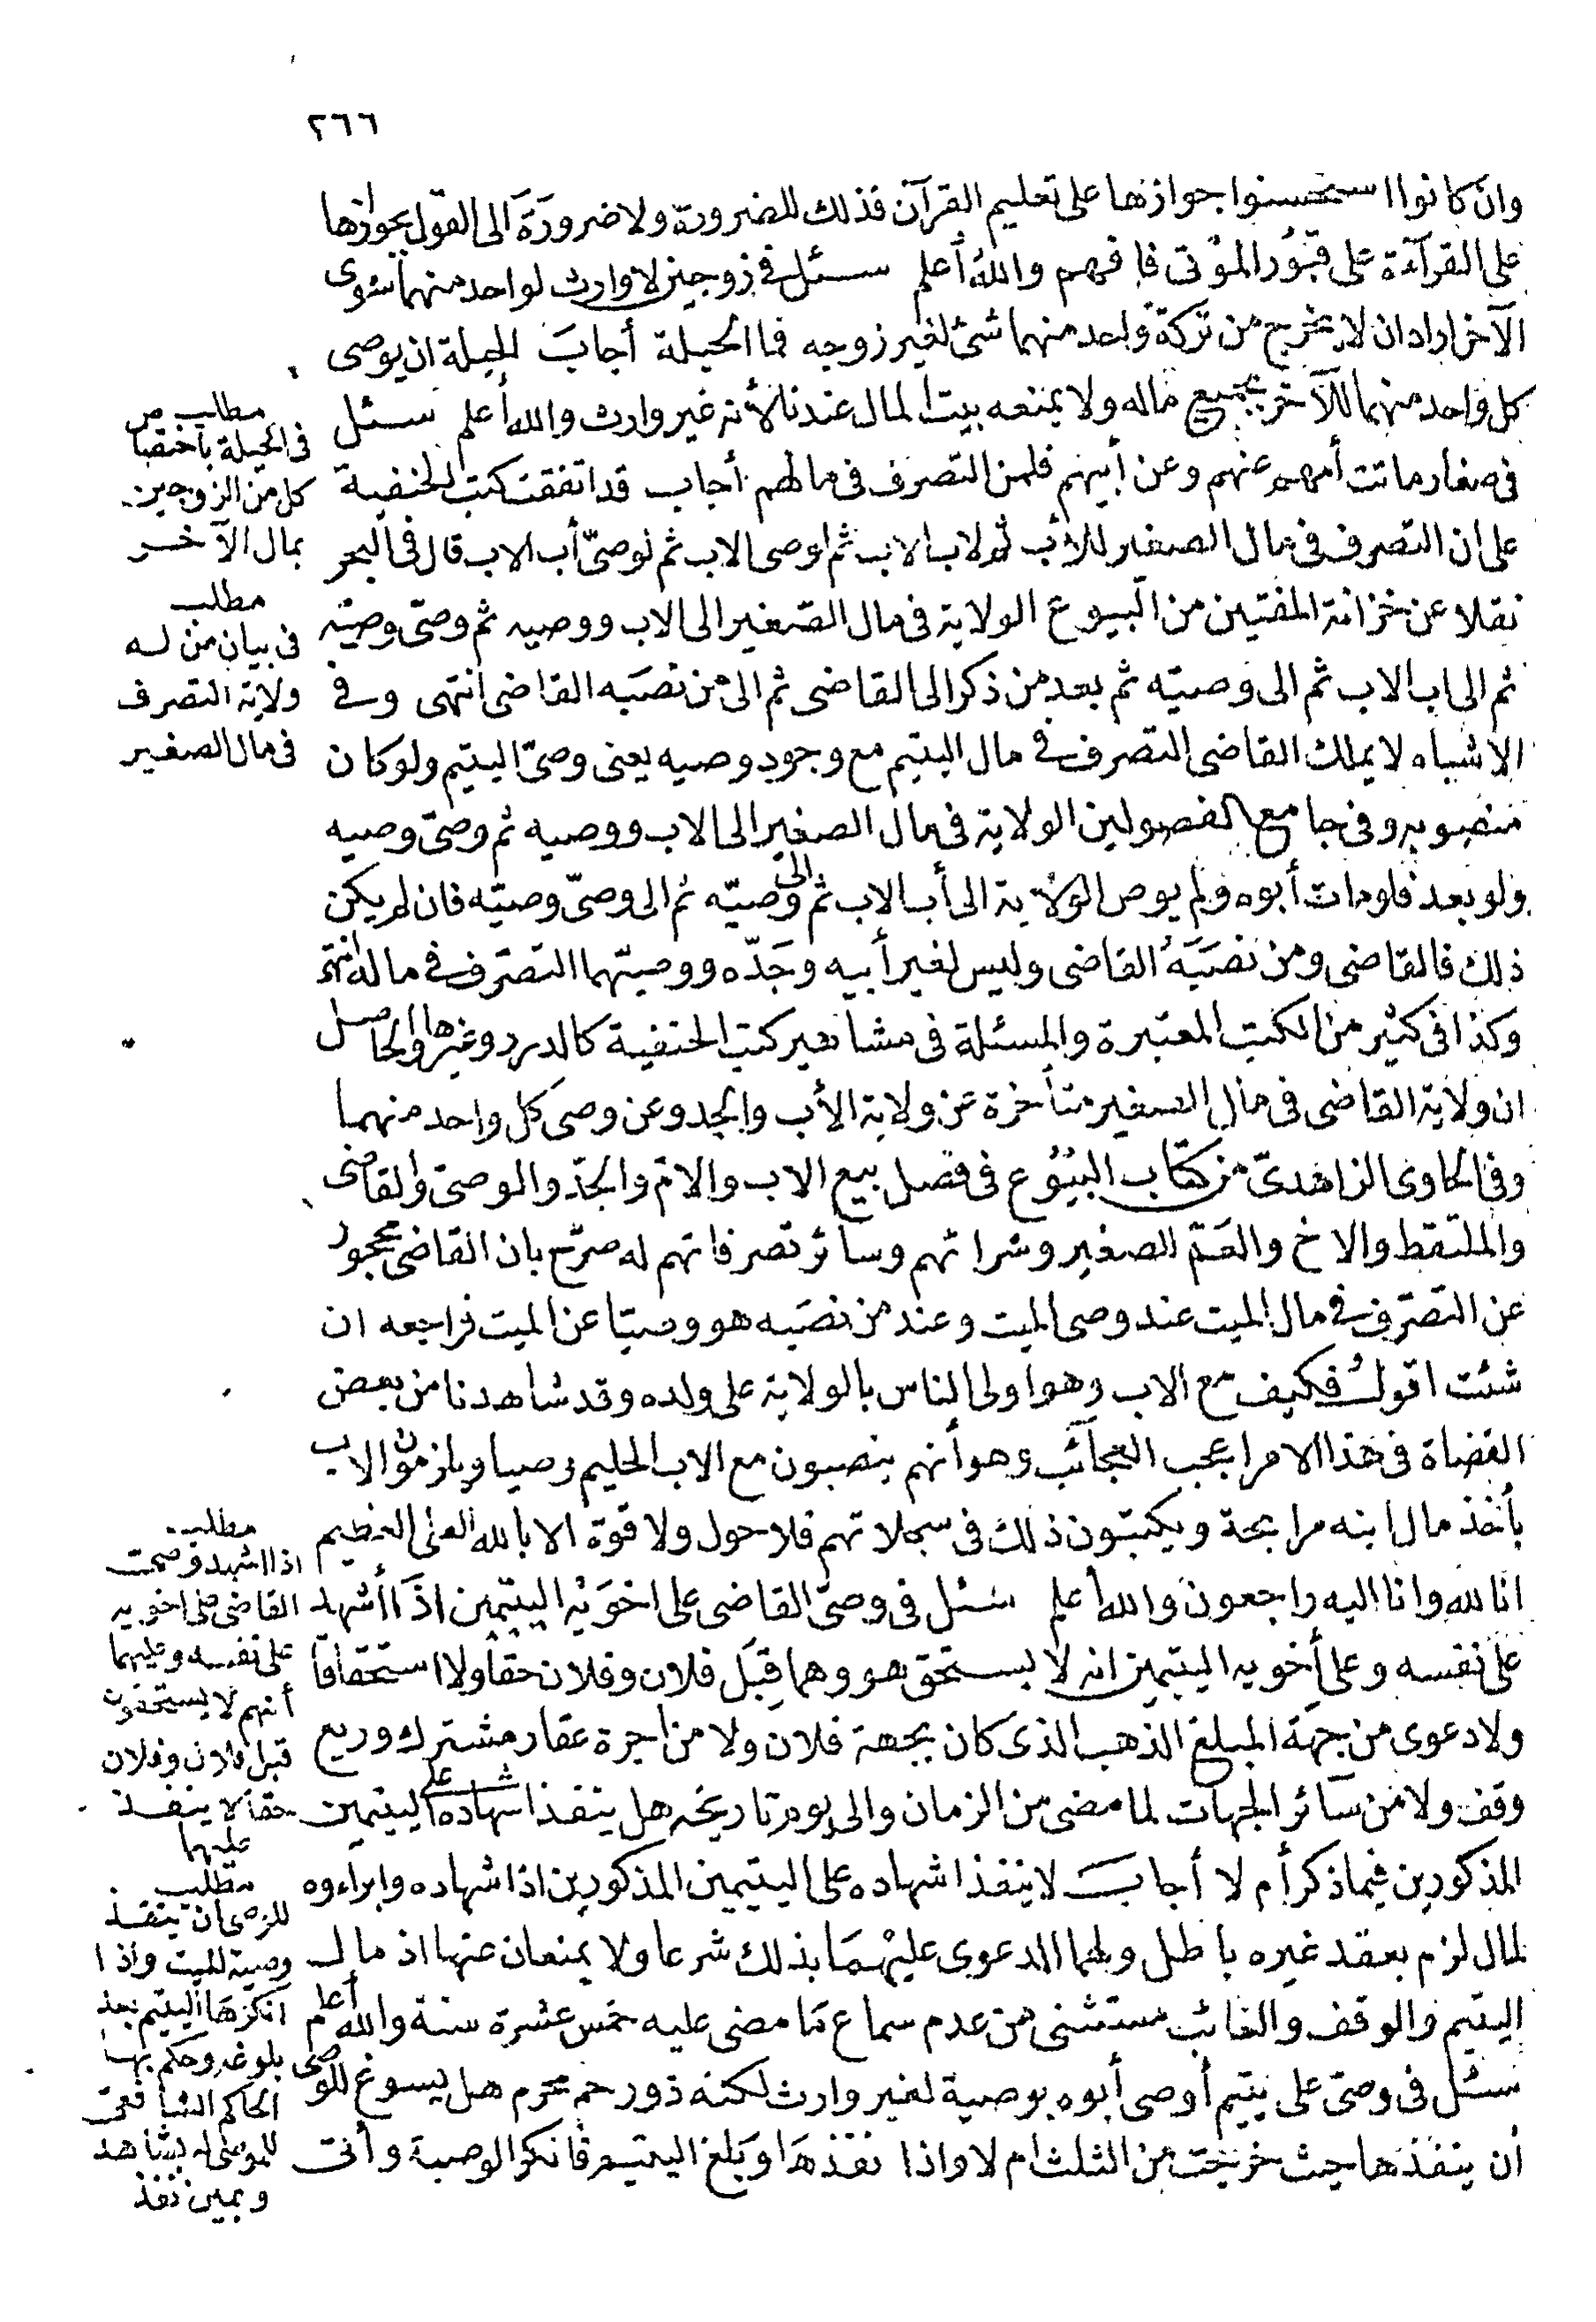 ٢٦٦
وان كانوا استحسنوا جوازها على تعليم القرآن فذلك للضرورة ولا ضرورة الى القول بجوازها
على القرآءة على قبور الموتى فافهم والله أعلم سئل في زوجين لا وارث لواحد منهما سوى
الآخر اراد ان لا يخرج من تركة واحد منهما شئ لغير زوجه فما الحيلة أجاب الحيلة ان يوصى
كل واحد منهما للآخر بجميع ماله ولا يمنعه بيت المال عندنا لأنه غير وارث والله أعلم سئل
في صغار ماتت أمهم عنهم وعن أبيهم فلمن التصرف في مالهم أجاب قد اتفقت كتب الحنفية
على ان التصرف في مال الصغير للأب ثم لاب الاب ثم لوصى الاب ثم لوصىّ أب الاب قال في البحر
نقلا عن خزانة المفتين من البيوع الولاية في مال الصّغير الى الاب ووصيه ثم وصىّ وصيّه
ثم الى اب الاب ثم الى وصيّه ثم بعد من ذكر الى القاضى ثم الى من نصَبه القاضى انتهى وفي
الاشباه لا يملك القاضى التصرف في مال اليتيم مع وجود وصيه يعنى وصىّ اليتيم ولو كان
منصوبه وفي جامع الفصولين الولاية في مال الصغير الى الاب ووصيه ثم وصىّ وصيه
ولو بعد فلو مات أبوه ولم يوص الولاية الى أب الاب ثم الى وصيّه ثم الى وصىّ وصيّه فان لم يكن
ذلك فالقاضى ومن نصَبَهُ القاضى وليس لغير أبيه وجَدّه ووصيّهما التصرّف في ماله انتهى
وكذا في كثير من الكتب المعتبرة والمسئلة في مشاهير كتب الحنفية كالدرر وغيرها والحاصل
ان ولاية القاضى في مال الصغير متأخرة عن ولاية الأب والجد وعن وصى كل واحد منهما
وفي الحاوى الزاهدىّ من كتاب البيُوع في فصل بيع الاب والام والجدّ والوصىّ والقاضى
والملتقط والاخ والعَمّ للصغير وشرائهم وسائر تصرفاتهم له صرّح بان القاضى محجور
عن التصرّف في مال الميت عند وصى الميت وعند من نصَبه هو وصيّا عن الميت فراجعه ان
شئت اقولُ فكيف مع الاب وهو اولى الناس بالولاية على ولده وقد شاهدنا من بعض
القضاة في هذا الامر اعجب العجآئب وهو أنهم ينصبون مع الاب الحليم وصيا ويلزمون الاب
بأخذ مال ابنه مرابحة ويكتبون ذلك في سجلاتهم فلا حول ولا قوة الا بالله العلى العظيم
انا لله وانا اليه راجعون والله أعلم سئل في وصىّ القاضى على اخوَيْه اليتيمين اذا أشهد
على نفسه وعلى أخويه اليتيمين انه لا يستحق هو وهما قِبَل فلان وفلان حقا ولا استحقاقا
ولا دعوى من جهة المبلغ الذهب الذى كان بجهة فلان ولا من اجرة عقار مشترك وريع
وقف ولا من سآئر الجهات لما مضى من الزمان والى يوم تاريخه هل ينفذ اشهاده على اليتيمين
المذكورين فيما ذكر أم لا أجاب لا ينفذ اشهاده على اليتيمين المذكورين اذ اشهاده وابراءوه
لمال لزم بعقد غيره باطل ولهما الدعوى عليهمَا بذلك شرعا ولا يمنعان عنها اذ مال
اليتيم والوقف والغائب مستثنى من عدم سماع مَا مضى عليه خمس عشرة سنة والله أعلم
سئل في وصىّ على يتيم أوصى أبوه بوصية لغير وارث لكنه ذو رحم محرم هل يسوغ للوصى
أن ينفذها حيث خرجَت من الثلث ام لا واذا نفّذهَا وبَلغ اليتيم فانكر الوصية وأتى
مطلب
في الحيلة باختصاص
كل من الزوجين
بمال الآخر
مطلب
في بيان من له
ولاية التصرف
في مال الصغير
مطلب
اذا اشهد وصى
القاضى على اخويه
على نفسه وعليهما
أنهم لا يستحقون
قبل فلان وفلان
حقا لا ينفذ
عليهما
مطلب
للوصى ان ينفذ
وصية الميت واذا
انكرها اليتيم بعد
بلوغه وحكم بها
الحاكم الشافعى
للموصى له بشاهد
ويمين نفذ